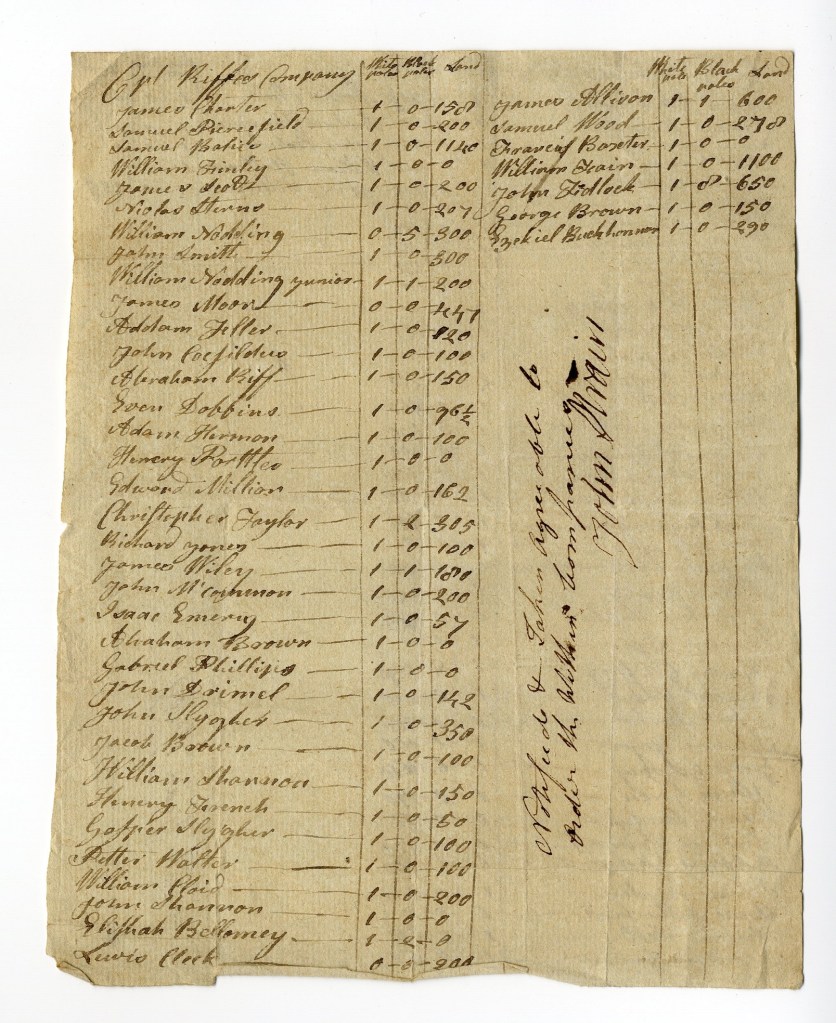 Cpt Riffes Company White notes Black notes Land
James Charter 1-0-158
Samuel Piercefield 1-0-200
Samuel 1-0-1140
William Finley 1-0-0
James Scott 1-0-200
Nicolas Sterns 1-0-207
William Nodding 0-5-300
John Smith 1-0-300
William Nodding junior 1-1-200
James Moor 0-0-447
Addam Feller 1-0-120
John 1-0-100
Abraham Riff 1-0-150
Even Dobbins 1-0-96½
Adam Hermon 1-0-100
Henery 1-0-0
Edward Million 1-0-162
Christopher Taylor 1-2-305
Richard Jones 1-0-100
James Wiley 1-1-180
John McCommon 1-0-200
Isaac Emery 1-0-57
Abaham Brown 1-0-0
Gabriel Phillips 1-0-0
John Drimel 1-0-142
John Slygher 1-0-350
Jacob Brown 1-0-100
William Shannon 1-0-150
Henery French 1-0-50
Gasper Slygher 1-0-100
Petter Walter 1-0-100
William Cloid 1-0-200
John Shannon 1-0-0
Elishah Bellomey 1-2-0
Lewis Clock 0-0-200
White notes Black notes Land
James Allison 1-1-600
Samuel Wood 1-0-278
Francis Baxter 1-0-0
William Fain 1-0-1100
John Fidlock 1-8-650
George Brown 1-0-150
Ezekiel Buckhonnon 1-0-290
Notifiede & Taken agreeable to
order the Within Companey
John Strain